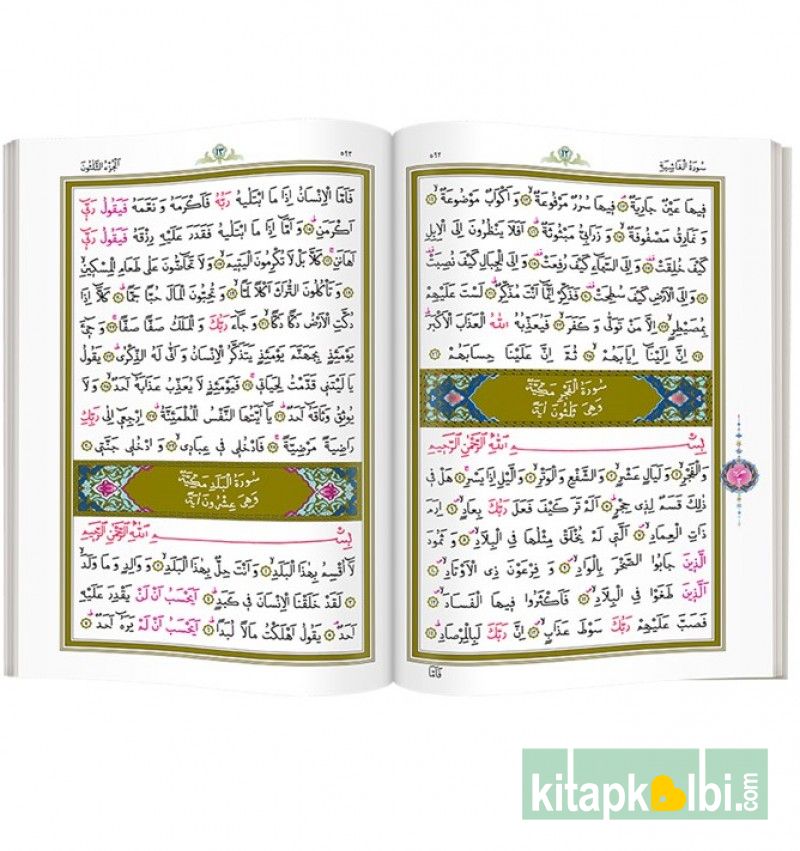 سورة الغاشية
١٢
٥٩٢
فِيهَا عَيْنٌ جَارِيَةٌ ﴿١٢﴾ فِيهَا سُرُرٌ مَرْفُوعَةٌ ﴿١٣﴾ وَ اَكْوَابٌ مَوْضُوعَةٌ ﴿١٤﴾
وَ نَمَارِقُ مَصْفُوفَةٌ ﴿١٥﴾ وَ زَرَابِيُّ مَبْثُوثَةٌ ﴿١٦﴾ اَفَلَا يَنْظُرُونَ اِلَى الْاِبِلِ
كَيْفَ خُلِقَتْ ﴿١٧﴾ وَ اِلَى السَّمَٓاءِ كَيْفَ رُفِعَتْ ﴿١٨﴾ وَ اِلَى الْجِبَالِ كَيْفَ نُصِبَتْ
﴿١٩﴾ وَ اِلَى الْاَرْضِ كَيْفَ سُطِحَتْ ﴿٢٠﴾ فَذَكِّرْ اِنَّمَٓا اَنْتَ مُذَكِّرٌ ﴿٢١﴾ لَسْتَ عَلَيْهِمْ
بِمُصَيْطِرٍ ﴿٢٢﴾ اِلَّا مَنْ تَوَلّٰى وَ كَفَرَ ﴿٢٣﴾ فَيُعَذِّبُهُ اللّٰهُ الْعَذَابَ الْاَكْبَرَ
﴿٢٤﴾ اِنَّ اِلَيْنَٓا اِيَابَهُمْ ﴿٢٥﴾ ثُمَّ اِنَّ عَلَيْنَا حِسَابَهُمْ ﴿٢٦﴾
سُورَةُ الْفَجْرِ مَكِّيَّةٌ
وَهِيَ ثَلٰثُونَ اٰيَةً
بِسْمِ اللّٰهِ الرَّحْمٰنِ الرَّحِيمِ
وَالْفَجْرِ ﴿١﴾ وَ لَيَالٍ عَشْرٍ ﴿٢﴾ وَ الشَّفْعِ وَ الْوَتْرِ ﴿٣﴾ وَ الَّيْلِ اِذَا يَسْرِ ﴿٤﴾ هَلْ فِي
ذٰلِكَ قَسَمٌ لِذِي حِجْرٍ ﴿٥﴾ اَلَمْ تَرَ كَيْفَ فَعَلَ رَبُّكَ بِعَادٍ ﴿٦﴾ اِرَمَ
ذَاتِ الْعِمَادِ ﴿٧﴾ اَلَّتِي لَمْ يُخْلَقْ مِثْلُهَا فِي الْبِلَادِ ﴿٨﴾ وَ ثَمُودَ
الَّذِينَ جَابُوا الصَّخْرَ بِالْوَادِ ﴿٩﴾ وَ فِرْعَوْنَ ذِي الْاَوْتَادِ ﴿١٠﴾
الَّذِينَ طَغَوْا فِي الْبِلَادِ ﴿١١﴾ فَاَكْثَرُوا فِيهَا الْفَسَادَ ﴿١٢﴾
فَصَبَّ عَلَيْهِمْ رَبُّكَ سَوْطَ عَذَابٍ ﴿١٣﴾ اِنَّ رَبَّكَ لَبِالْمِرْصَادِ ﴿١٤﴾
فَاَمَّا
٥٩٣
١٣
الجزء الثلثون
فَاَمَّا الْاِنْسَانُ اِذَا مَا ابْتَلٰيهُ رَبُّهُ فَاَكْرَمَهُ وَ نَعَّمَهُ فَيَقُولُ رَبِّٓي
اَكْرَمَنِ ﴿١٥﴾ وَ اَمَّٓا اِذَا مَا ابْتَلٰيهُ فَقَدَرَ عَلَيْهِ رِزْقَهُ فَيَقُولُ رَبِّٓي
اَهَانَنِ ﴿١٦﴾ كَلَّا بَلْ لَا تُكْرِمُونَ الْيَتِيمَ ﴿١٧﴾ وَ لَا تَحَٓاضُّونَ عَلٰى طَعَامِ الْمِسْكِينِ
﴿١٨﴾ وَ تَاْكُلُونَ التُّرَاثَ اَكْلًا لَمًّا ﴿١٩﴾ وَ تُحِبُّونَ الْمَالَ حُبًّا جَمًّا ﴿٢٠﴾ كَلَّٓا اِذَا
دُكَّتِ الْاَرْضُ دَكًّا دَكًّا ﴿٢١﴾ وَ جَٓاءَ رَبُّكَ وَ الْمَلَكُ صَفًّا صَفًّا ﴿٢٢﴾ وَ جِيءَ
يَوْمَئِذٍ بِجَهَنَّمَ يَوْمَئِذٍ يَتَذَكَّرُ الْاِنْسَانُ وَ اَنّٰى لَهُ الذِّكْرٰى ﴿٢٣﴾ يَقُولُ
يَا لَيْتَنِي قَدَّمْتُ لِحَيَاتِي ﴿٢٤﴾ فَيَوْمَئِذٍ لَا يُعَذِّبُ عَذَابَهُٓ اَحَدٌ ﴿٢٥﴾ وَ لَا
يُوثِقُ وَثَاقَهُٓ اَحَدٌ ﴿٢٦﴾ يَٓا اَيَّتُهَا النَّفْسُ الْمُطْمَئِنَّةُ ﴿٢٧﴾ اِرْجِعِٓي اِلٰى رَبِّكِ
رَاضِيَةً مَرْضِيَّةً ﴿٢٨﴾ فَادْخُلِي فِي عِبَادِي ﴿٢٩﴾ وَ ادْخُلِي جَنَّتِي ﴿٣٠﴾
سُورَةُ الْبَلَدِ مَكِّيَّةٌ
وَهِيَ عِشْرُونَ اٰيَةً
بِسْمِ اللّٰهِ الرَّحْمٰنِ الرَّحِيمِ
لَٓا اُقْسِمُ بِهٰذَا الْبَلَدِ ﴿١﴾ وَ اَنْتَ حِلٌّ بِهٰذَا الْبَلَدِ ﴿٢﴾ وَ وَالِدٍ وَ مَا وَلَدَ
﴿٣﴾ لَقَدْ خَلَقْنَا الْاِنْسَانَ فِي كَبَدٍ ﴿٤﴾ اَيَحْسَبُ اَنْ لَنْ يَقْدِرَ عَلَيْهِ
اَحَدٌ ﴿٥﴾ يَقُولُ اَهْلَكْتُ مَالًا لُبَدًا ﴿٦﴾ اَيَحْسَبُ اَنْ لَمْ يَرَهُٓ اَحَدٌ ﴿٧﴾
kitapkalbi.com